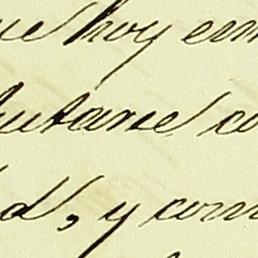 ue hoy em
butarse co
d, y com